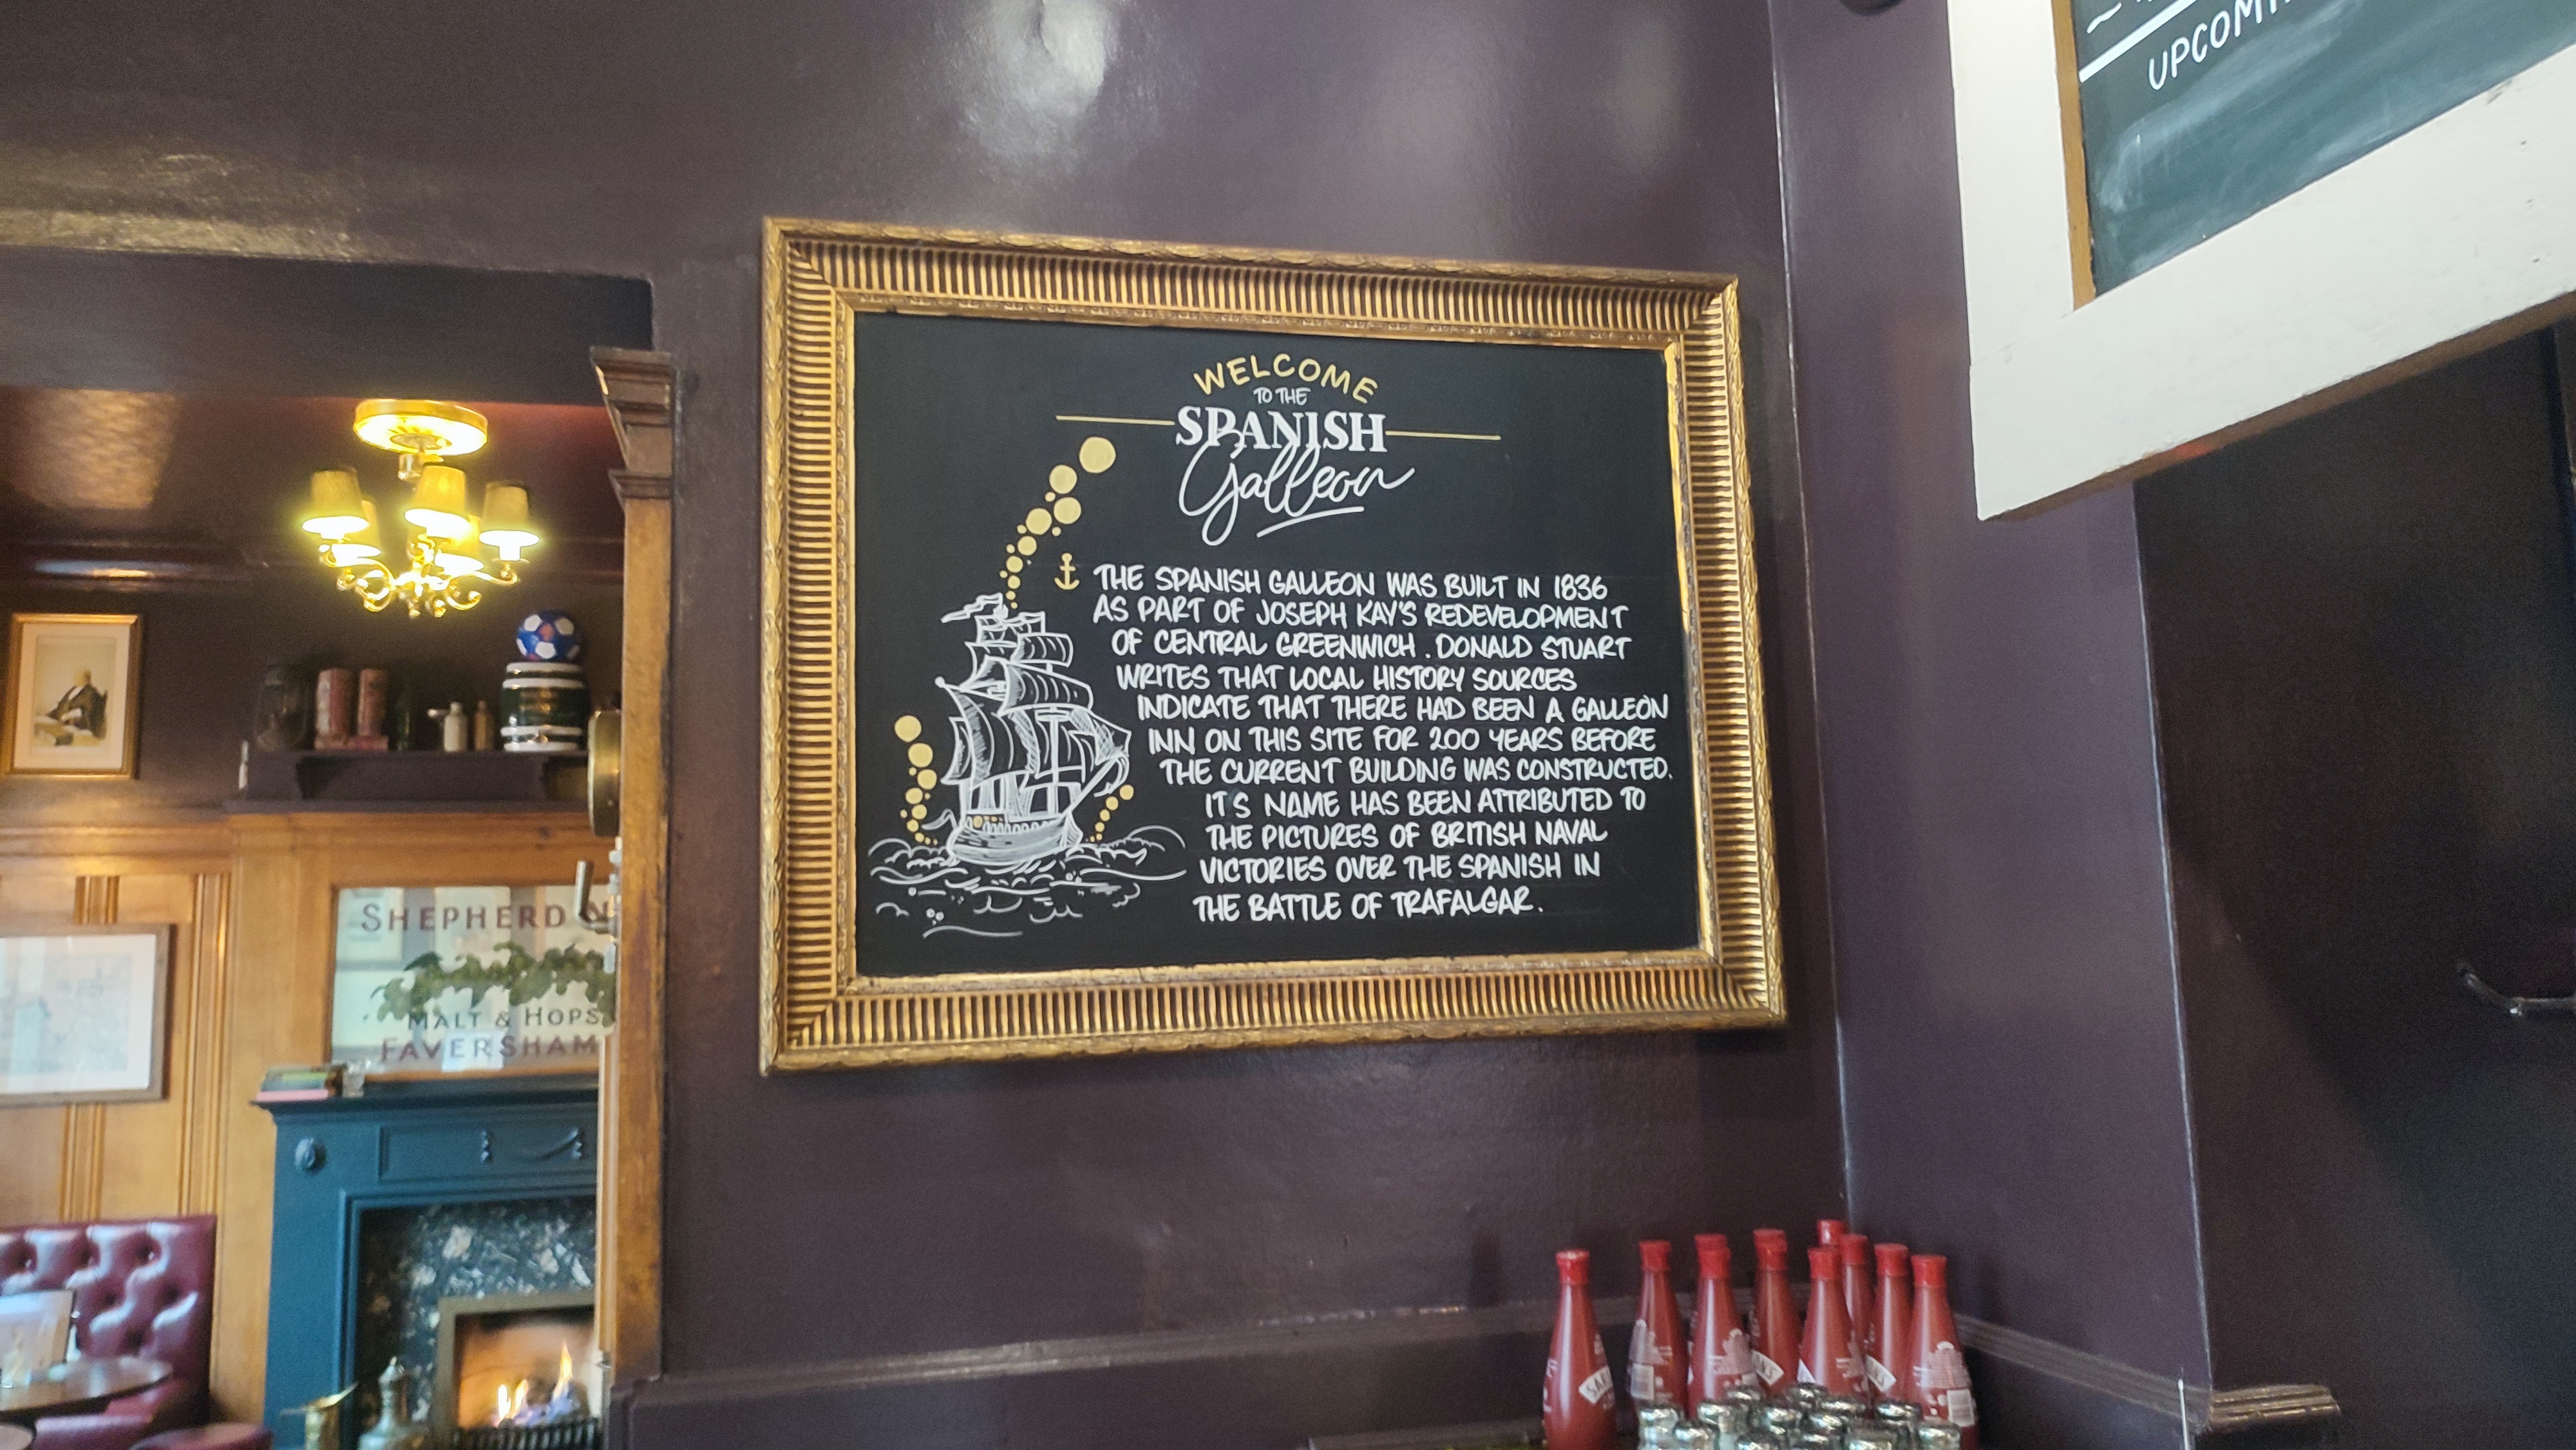 WELCOME
TO THE
SPANISH
Galleon
THE SPANISH GALLEON WAS BUILT IN 1836
AS PART OF JOSEPH KAY'S REDEVELOPMENT
OF CENTRAL GREENWICH. DONALD STUART
WRITES THAT LOCAL HISTORY SOURCES
INDICATE THAT THERE HAD BEEN A GALLEON
INN ON THIS SITE FOR 200 YEARS BEFORE
THE CURRENT BUILDING WAS CONSTRUCTED.
IT'S NAME HAS BEEN ATTRIBUTED TO
THE PICTURES OF BRITISH NAVAL
VICTORIES OVER THE SPANISH IN
THE BATTLE OF TRAFALGAR.
SHEPHERD N
MALT & HOPS
FAVERSHAM